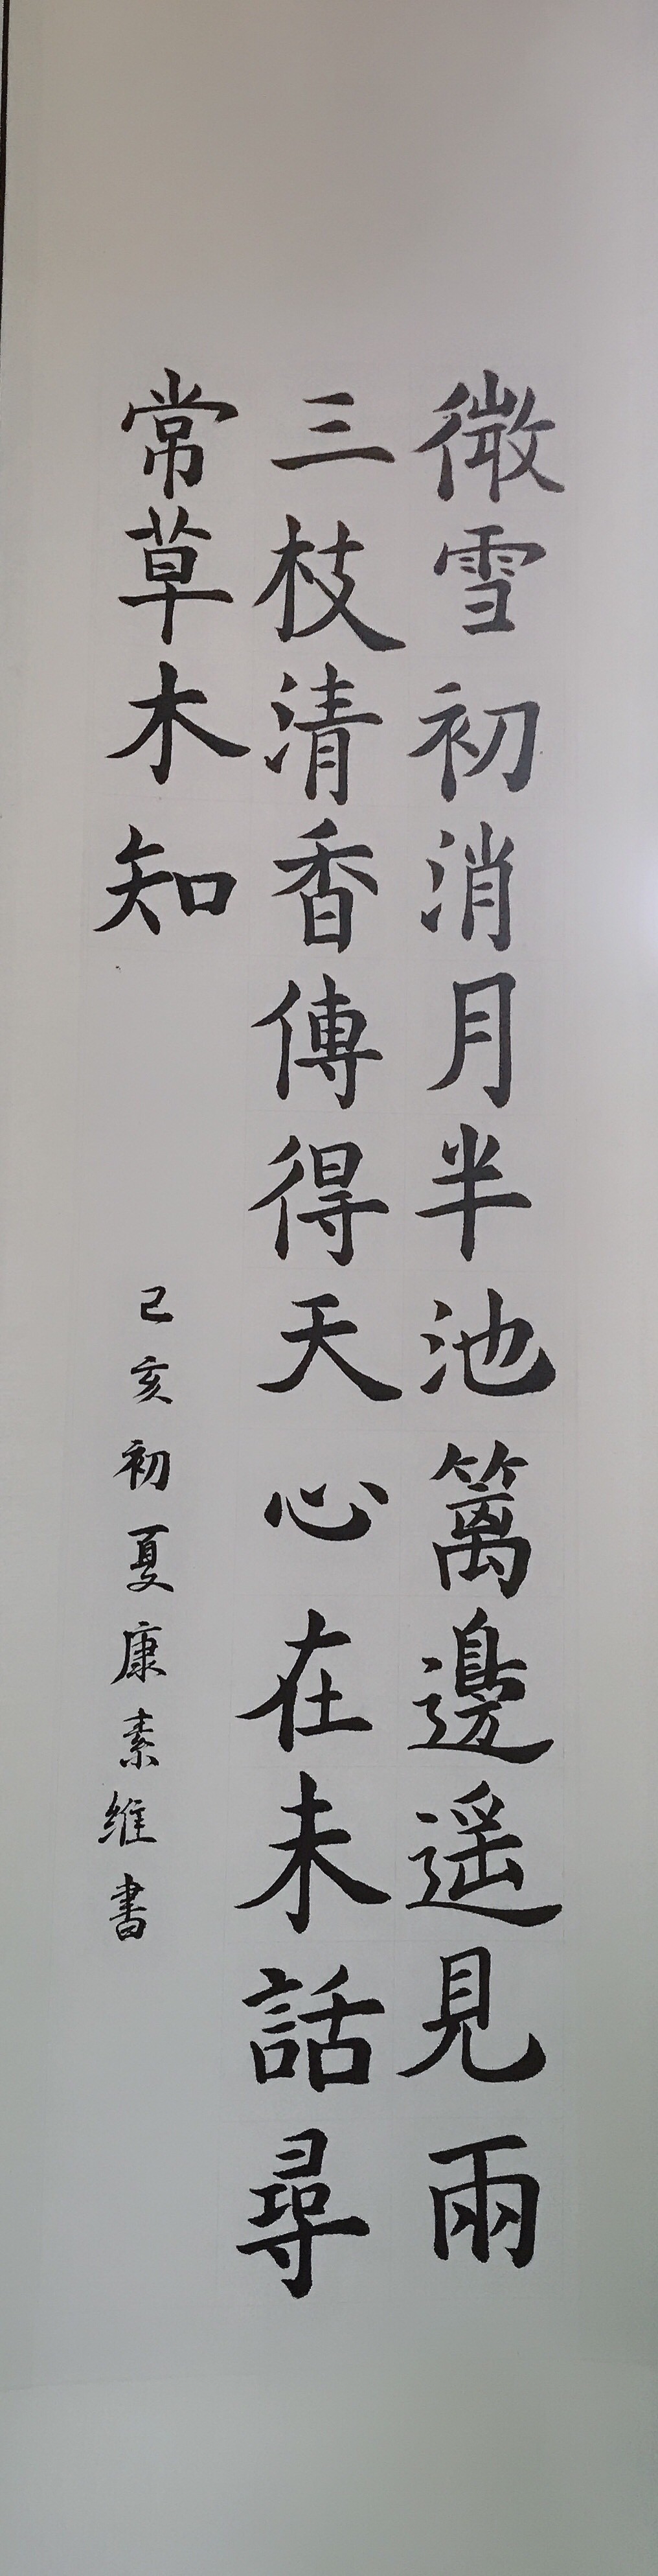 微雪初消月半池籬邊遥見兩
三枝清香傳得天心在未話尋
常草木知
己亥初夏康素維書